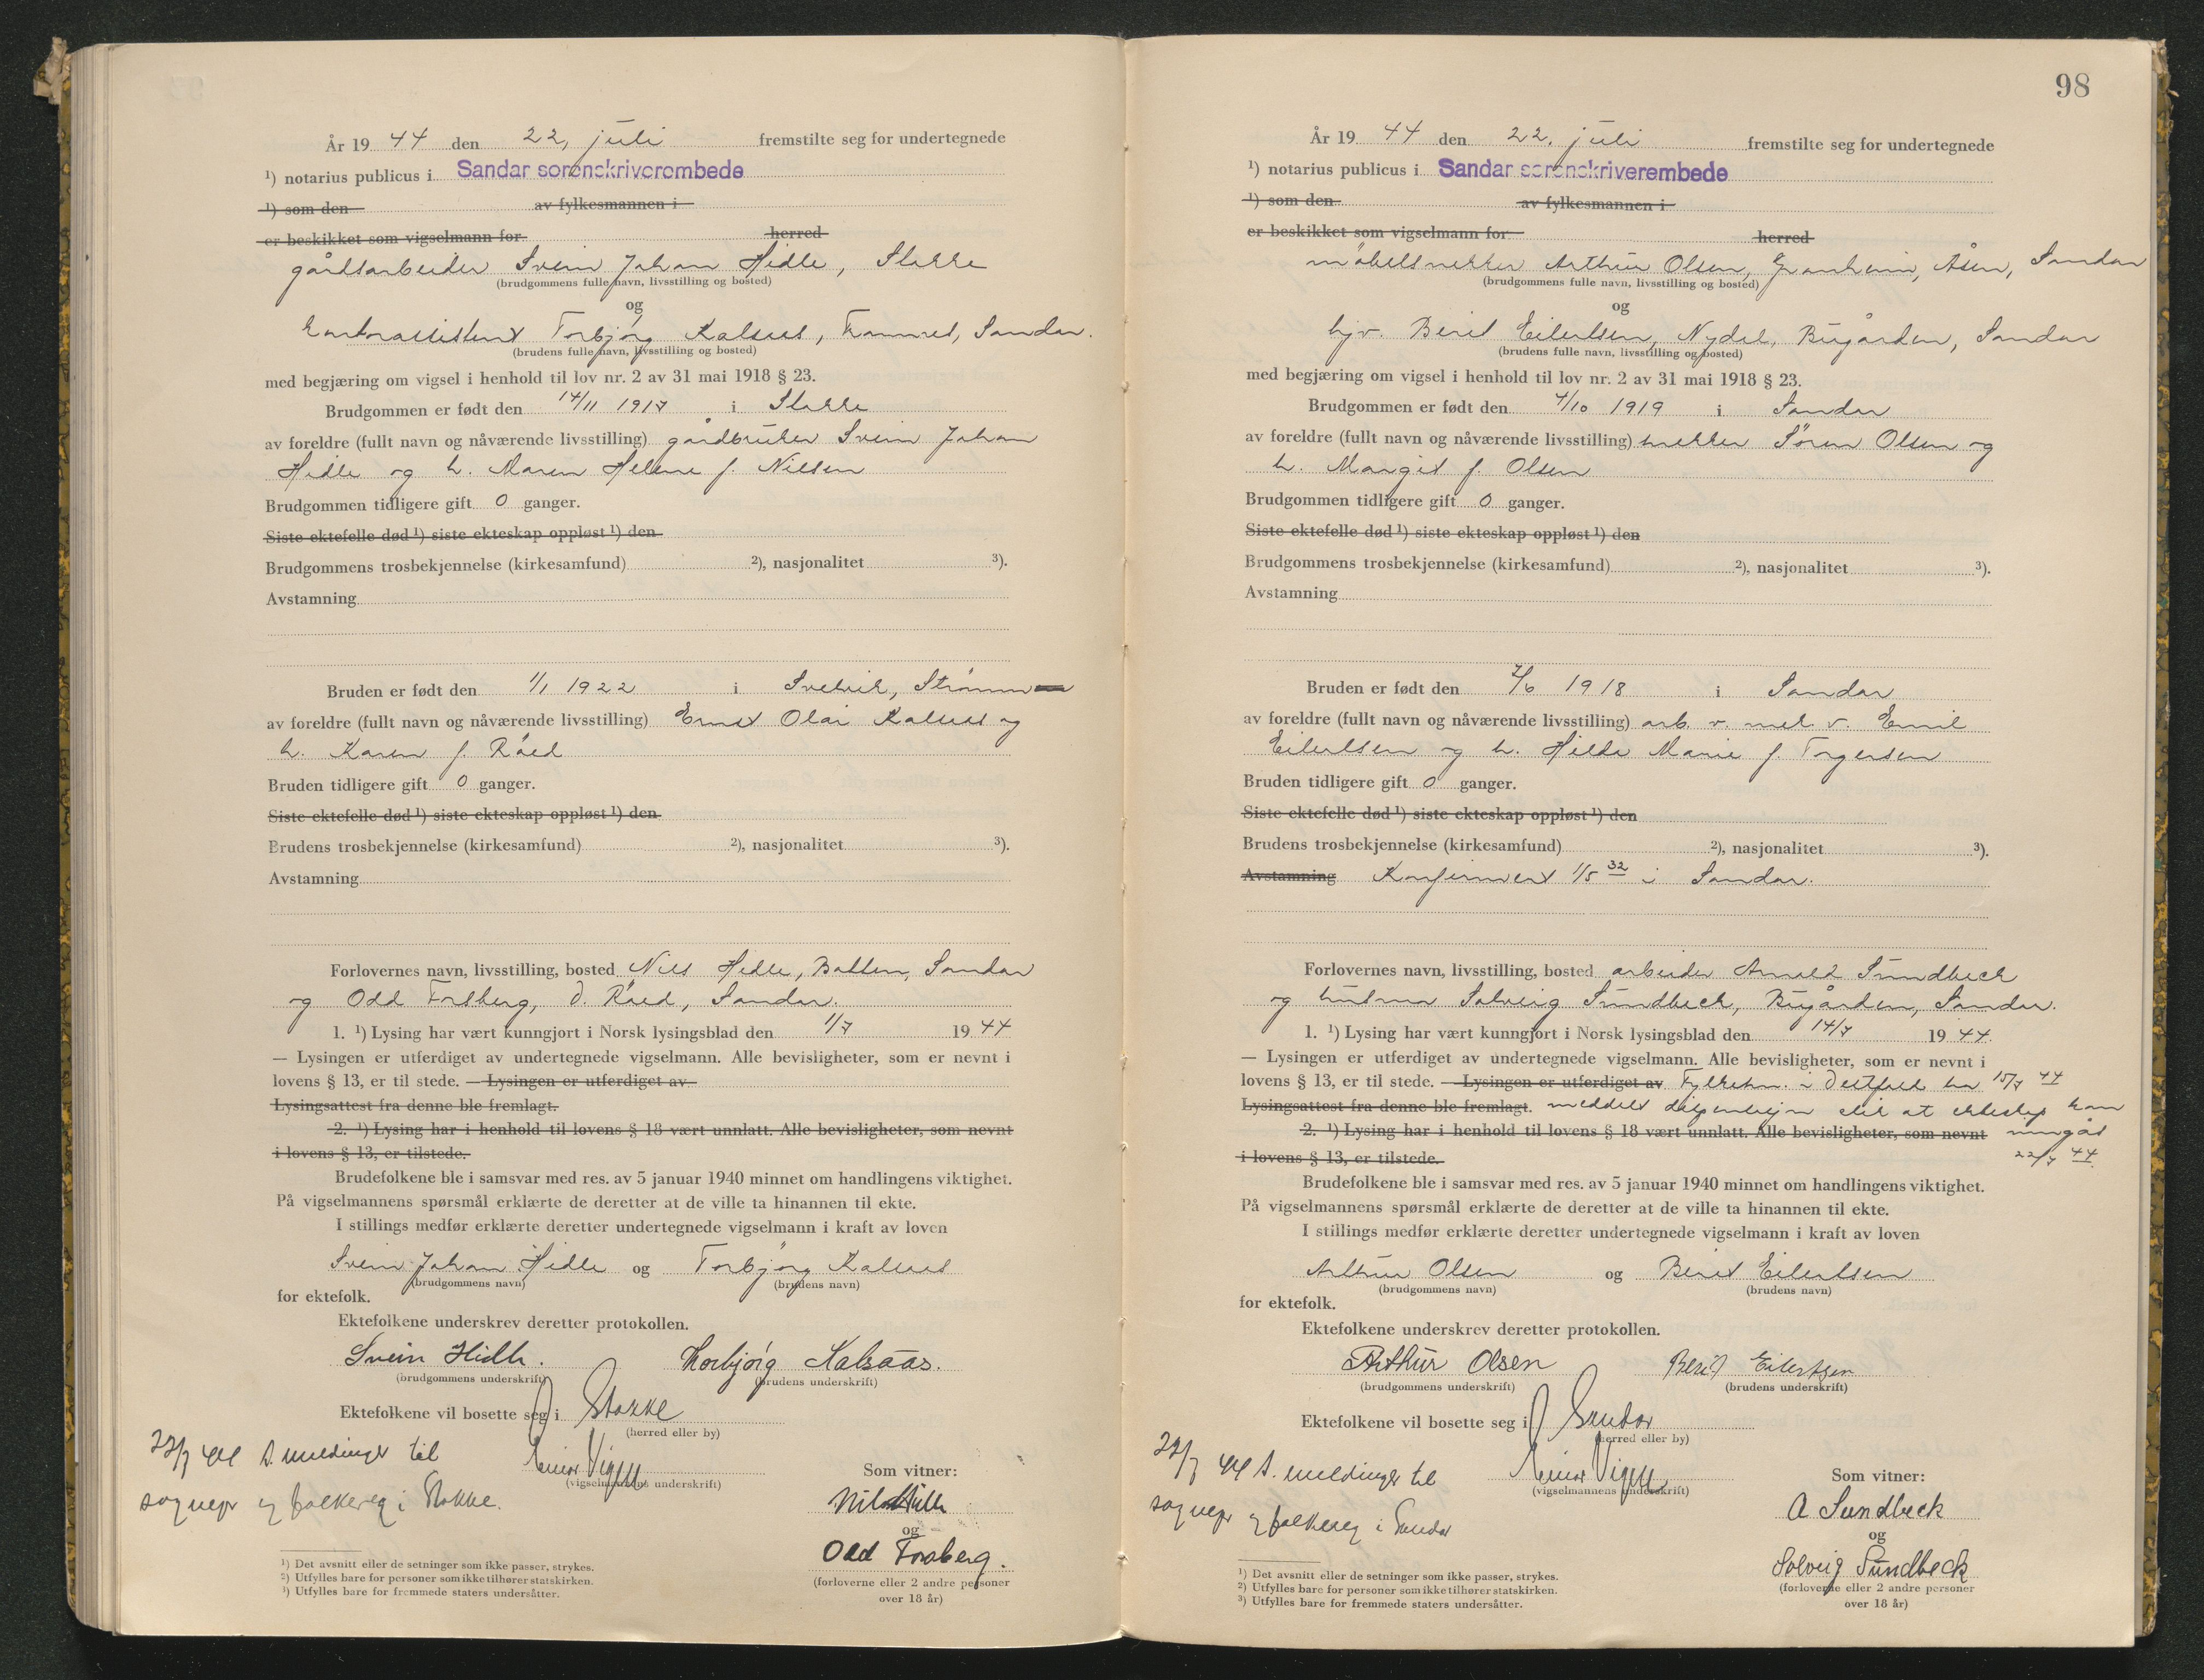 År 19 44 den 22, juli fremstilte seg for undertegnede
¹) notarius publicus i Sandar sorenskriverembede
¹) som den av fylkesmannen i
er beskikket som vigselmann for herred
gårdsarbeider Svein Johan Hidle, Stokke
(brudgommens fulle navn, livsstilling og bosted)
og
kontorassistent Torbjørg Kalsaas, Framnes, Sandar.
(brudens fulle navn, livsstilling og bosted)
med begjæring om vigsel i henhold til lov nr. 2 av 31 mai 1918 § 23.
Brudgommen er født den 14/11 1917 i Stokke
av foreldre (fullt navn og nåværende livsstilling) gårdbruker Svein Johan
Hidle og h. Maren Helene f. Nilsen
Brudgommen tidligere gift 0 ganger.
Siste ektefelle død ¹) siste ekteskap oppløst ¹) den
Brudgommens trosbekjennelse (kirkesamfund) ²), nasjonalitet ³).
Avstamning
Bruden er født den 1/1 1922 i Svelvik, Strømm
av foreldre (fullt navn og nåværende livsstilling) Ernst Olai Kalsaas og
h. Karen f. Røed
Bruden tidligere gift 0 ganger.
Siste ektefelle død ¹) siste ekteskap oppløst ¹) den
Brudens trosbekjennelse (kirkesamfund) ²), nasjonalitet ³).
Avstamning
Forlovernes navn, livsstilling, bosted Nils Hidle, Sandar
og Odd Forsberg, Ø. Røed, Sandar.
1. ¹) Lysing har vært kunngjort i Norsk lysingsblad den 1/7 19 44
— Lysingen er utferdiget av undertegnede vigselmann. Alle bevisligheter, som er nevnt i
lovens § 13, er til stede. — Lysingen er utferdiget av
Lysingsattest fra denne ble fremlagt.
2. ¹) Lysing har i henhold til lovens § 18 vært unnlatt. Alle bevisligheter, som nevnt
i lovens § 13, er tilstede.
Brudefolkene ble i samsvar med res. av 5 januar 1940 minnet om handlingens viktighet.
På vigselmannens spørsmål erklærte de deretter at de ville ta hinannen til ekte.
I stillings medfør erklærte deretter undertegnede vigselmann i kraft av loven
Svein Johan Hidle og Torbjørg Kalsaas
(brudgommens navn) (brudens navn)
for ektefolk.
Ektefolkene underskrev deretter protokollen.
Svein Hidle. Torbjørg Kalsaas.
(brudgommens underskrift) (brudens underskrift)
Ektefolkene vil bosette seg i Stokke
(herred eller by)
22/7 44 S. meldinger til
sognepr og folkereg i Stokke.
Einar Vigen
(vigselmannens underskrift)
Som vitner:
Nils Hidle
og
Odd Forsberg.
(forloverne eller 2 andre personer
over 18 år)
¹) Det avsnitt eller de setninger som ikke passer, strykes.
²) Utfylles bare for personer som ikke tilhører statskirken.
³) Utfylles bare for fremmede staters undersåtter.
98
År 19 44 den 22. juli fremstilte seg for undertegnede
¹) notarius publicus i Sandar sorenskriverembede
¹) som den av fylkesmannen i
er beskikket som vigselmann for herred
möbelsnekker Arthur Olsen, Granheim, Åsen, Sandar
(brudgommens fulle navn, livsstilling og bosted)
og
hjv. Berit Eilertsen, Nydal, Bugården, Sandar
(brudens fulle navn, livsstilling og bosted)
med begjæring om vigsel i henhold til lov nr. 2 av 31 mai 1918 § 23.
Brudgommen er født den 4/10 1919 i Sandar
av foreldre (fullt navn og nåværende livsstilling) snekker Søren Olsen og
h. Margit f. Olsen
Brudgommen tidligere gift 0 ganger.
Siste ektefelle død ¹) siste ekteskap oppløst ¹) den
Brudgommens trosbekjennelse (kirkesamfund) ²), nasjonalitet ³).
Avstamning
Bruden er født den 7/6 1918 i Sandar
av foreldre (fullt navn og nåværende livsstilling) arb. v. mek. v. Emil
Eilertsen og h. Hilda Marie f. Torgersen
Bruden tidligere gift 0 ganger.
Siste ektefelle død ¹) siste ekteskap oppløst ¹) den
Brudens trosbekjennelse (kirkesamfund) ²), nasjonalitet ³).
Avstamning Konfirmert 1/5 32 i Sandar.
Forlovernes navn, livsstilling, bosted arbeider Arnold Sundbeck
og hustru Solveig Sundbeck, Bugården, Sandar.
1. ¹) Lysing har vært kunngjort i Norsk lysingsblad den 14/7 19 44.
— Lysingen er utferdiget av undertegnede vigselmann. Alle bevisligheter, som er nevnt i
lovens § 13, er til stede. — Lysingen er utferdiget av Fylkesm. i Vestfold har 15/7 44
Lysingsattest fra denne ble fremlagt. meddelt dispensasjon slik at ekteskap kan
2. ¹) Lysing har i henhold til lovens § 18 vært unnlatt. Alle bevisligheter, som nevnt inngås
i lovens § 13, er tilstede. 22/7 44.
Brudefolkene ble i samsvar med res. av 5 januar 1940 minnet om handlingens viktighet.
På vigselmannens spørsmål erklærte de deretter at de ville ta hinannen til ekte.
I stillings medfør erklærte deretter undertegnede vigselmann i kraft av loven
Arthur Olsen og Berit Eilertsen
(brudgommens navn) (brudens navn)
for ektefolk.
Ektefolkene underskrev deretter protokollen.
Arthur Olsen Berit Eilertsen
(brudgommens underskrift) (brudens underskrift)
Ektefolkene vil bosette seg i Sandar
(herred eller by)
22/7 44 S. meldinger til
sognepr og folkereg i Sandar
Einar Vigen
(vigselmannens underskrift)
Som vitner:
A Sundbeck
og
Solveig Sundbeck
(forloverne eller 2 andre personer
over 18 år)
¹) Det avsnitt eller de setninger som ikke passer, strykes.
²) Utfylles bare for personer som ikke tilhører statskirken.
³) Utfylles bare for fremmede staters undersåtter.